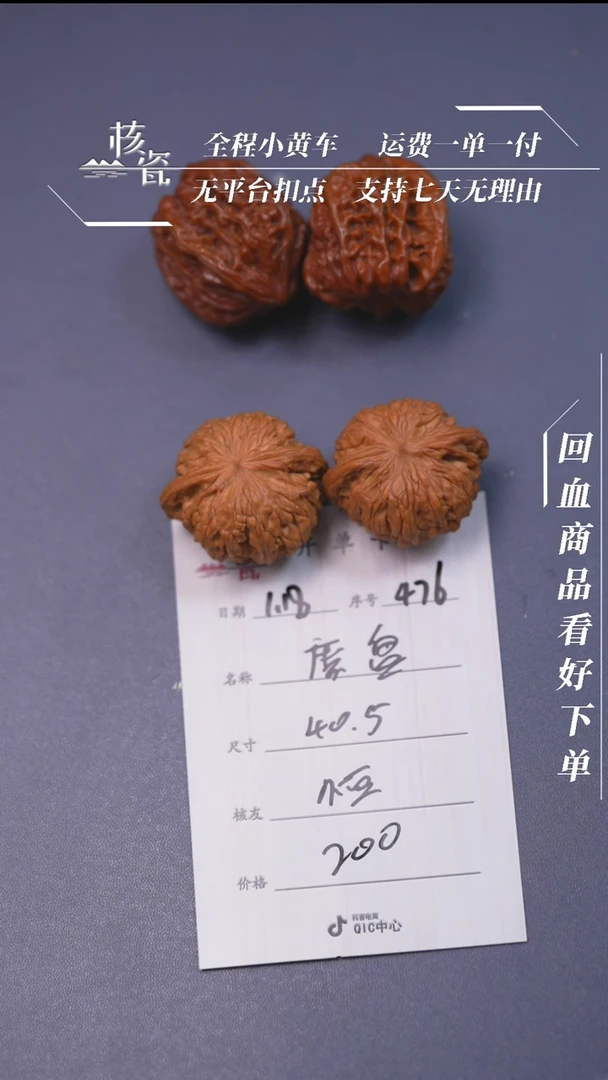 核瓷
全程小黄车 运费一单一付
无平台扣点 支持七天无理由
回血商品看好下单
开单卡
日期 1.18 序号 476
名称
尺寸 40.5
核友
价格 200
抖音电商
QIC中心